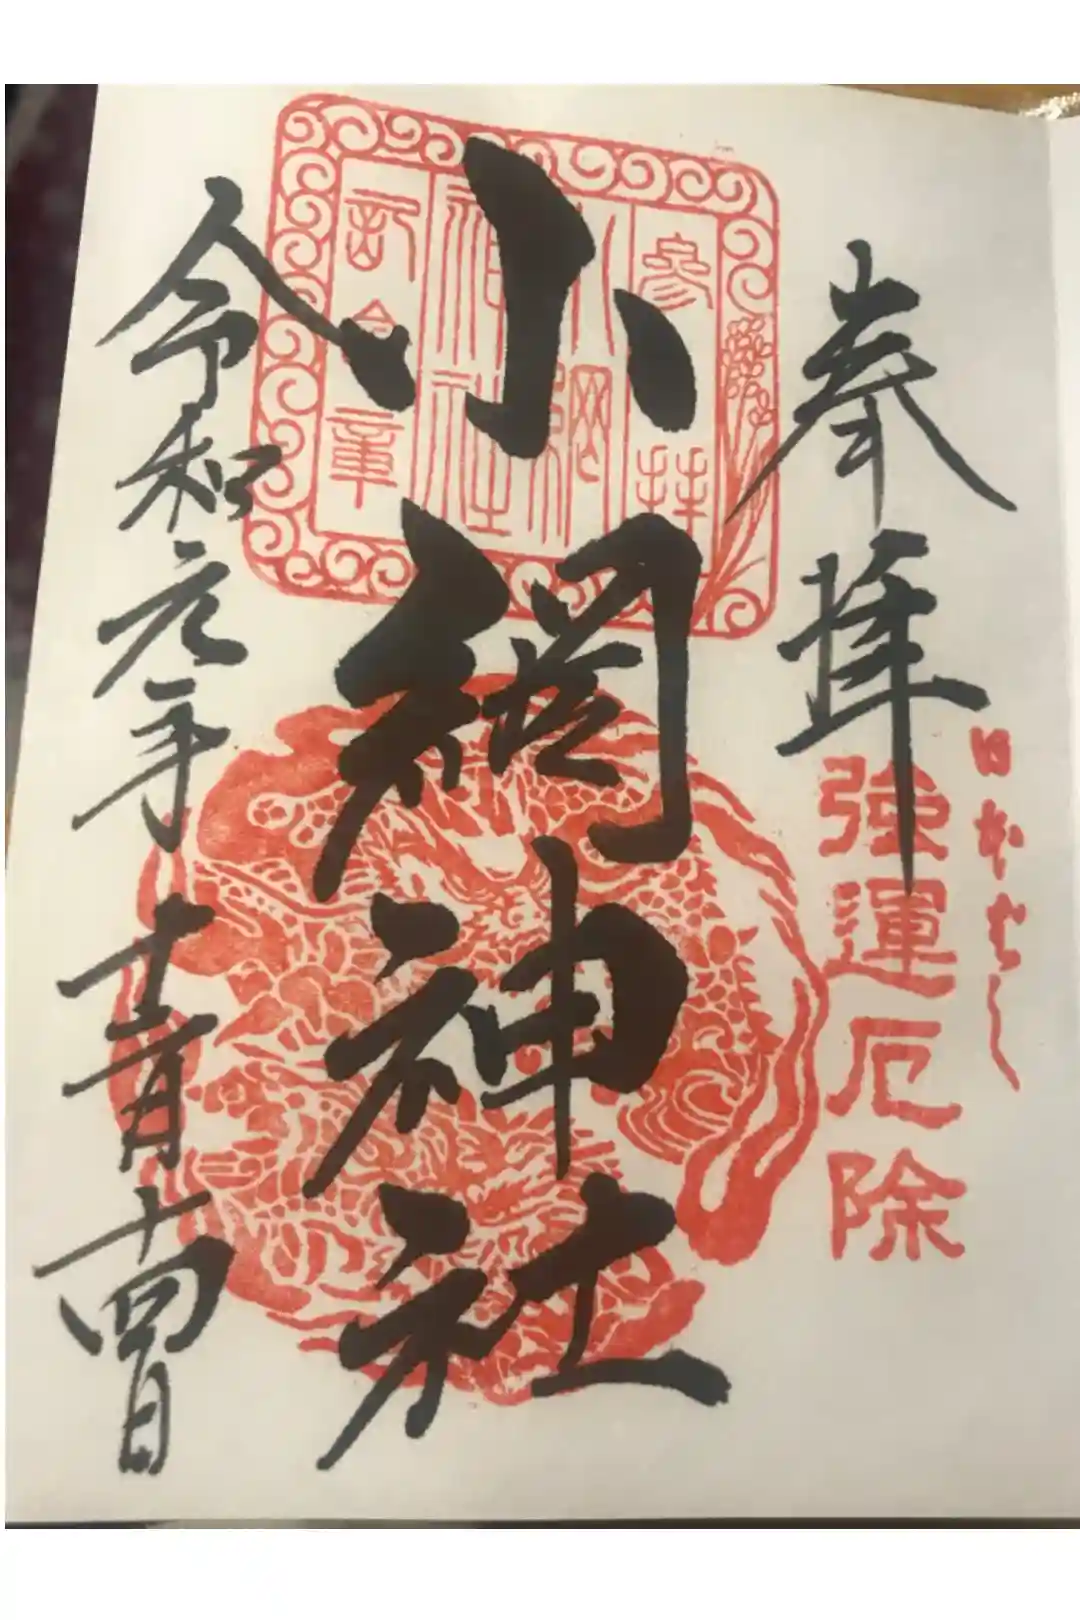 日本ばし
奉拝
強運厄除
小網神社
参拝
小網
神社
記念章
令和元年十二月十四日